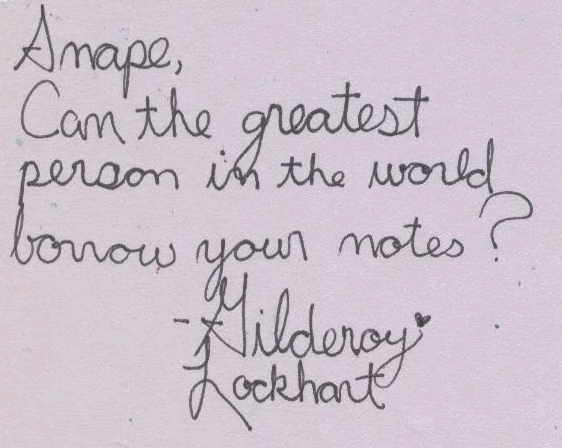 Snape,
Can the greatest
person in the world
borrow your notes?
-Gilderoy
Lockhart